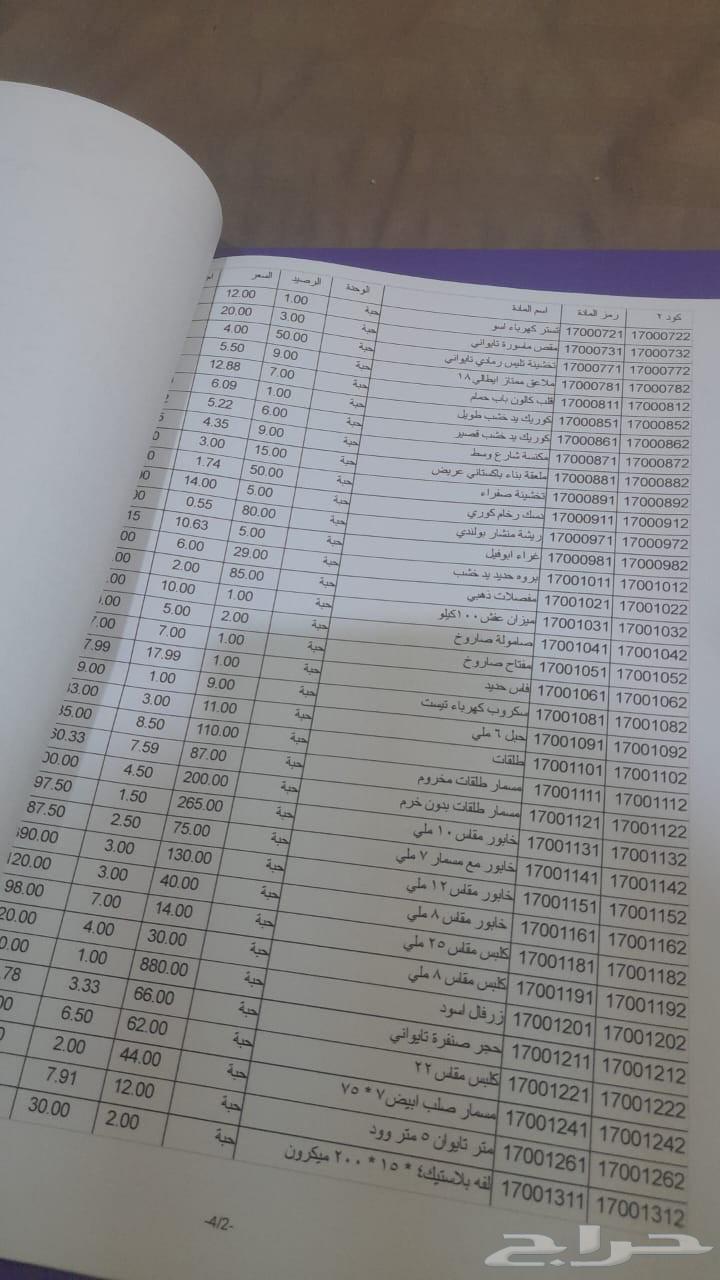 كود ٢ رمز المادة اسم المادة الوحدة الرصيد السعر
17000722 17000721 تستر كهرباء اسو حبة 1.00 12.00
17000732 17000731 مقص ماسورة تايواني حبة 3.00 20.00
17000772 17000771 تخشينة تلبس رمادي تايواني حبة 50.00 4.00
17000782 17000781 ملاعق ممتاز ايطالي ١٨ حبة 9.00 5.50
17000812 17000811 قلب كالون باب حمام حبة 7.00 12.88
17000852 17000851 كوريك يد خشب طويل حبة 1.00 6.09
17000862 17000861 كوريك يد خشب قصير حبة 6.00 5.22
17000872 17000871 مكنسة شارع وسط حبة 9.00 4.35
17000882 17000881 ملعقة بناء باكستاني عريض حبة 15.00 3.00
17000892 17000891 تخشينة صفراء حبة 50.00 1.74
17000912 17000911 دسك رخام كوري حبة 5.00 14.00
17000972 17000971 ريشة منشار بولندي حبة 80.00 0.55
17000982 17000981 غراء ابوفيل حبة 5.00 10.63 15
17001012 17001011 بروه حديد يد خشب حبة 29.00 6.00 .00
17001022 17001021 مفصلات ذهبي حبة 85.00 2.00 .00
17001032 17001031 ميزان عفش١٠٠كيلو حبة 1.00 10.00 .00
17001042 17001041 صامولة صاروخ حبة 2.00 5.00 .00
17001052 17001051 مفتاح صاروخ حبة 1.00 7.00 7.00
17001062 17001061 فاس حديد حبة 1.00 17.99 7.99
17001082 17001081 سكروب كهرباء تيست حبة 9.00 1.00 9.00
17001092 17001091 حبل ٦ ملي حبة 11.00 3.00 33.00
17001102 17001101 طلقات حبة 110.00 8.50 35.00
17001112 17001111 مسمار طلقات مخروم حبة 87.00 7.59 60.33
17001122 17001121 مسمار طلقات بدون خرم حبة 200.00 4.50 00.00
17001132 17001131 خابور مقاس ١٠ ملي حبة 265.00 1.50 97.50
17001142 17001141 خابور مع مسمار ٧ ملي حبة 75.00 2.50 87.50
17001152 17001151 خابور مقاس ١٢ ملي حبة 130.00 3.00 390.00
17001162 17001161 خابور مقاس ٨ ملي حبة 40.00 3.00 120.00
17001182 17001181 كلبس مقاس ٢٥ ملي حبة 14.00 7.00 98.00
17001192 17001191 كلبس مقاس ٨ ملي حبة 30.00 4.00 20.00
17001202 17001201 زرفال اسود حبة 880.00 1.00 0.00
17001212 17001211 حجر صنفرة تايواني حبة 66.00 3.33 .78
17001222 17001221 كلبس مقاس ٢٢ حبة 62.00 6.50 00
17001242 17001241 مسمار صلب ابيض٧ * ٧٥ حبة 44.00 2.00
17001262 17001261 متر تايوان ٥ متر وود حبة 12.00 7.91
17001312 17001311 لفه بلاستيك٤ * ١٥ * ٢٠٠ ميكرون حبة 2.00 30.00
-4/2-
حراج